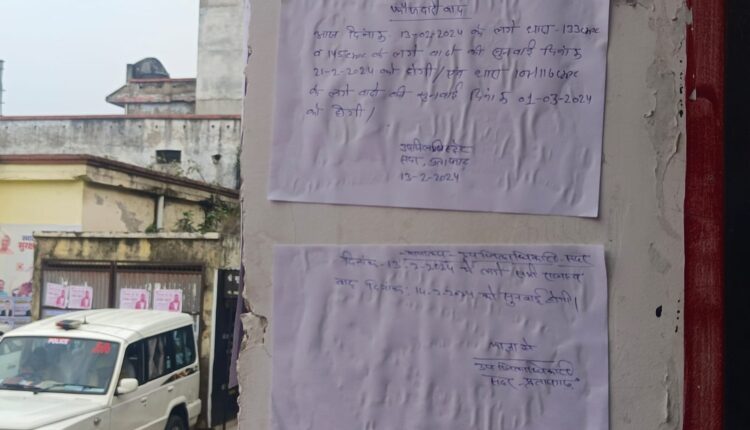 फौजदारी वाद
आज दिनांक 13-02-2024 के लगे धारा-133crpc
व 145crpc के लगे वादों की सुनवाई दिनांक
21-2-2024 को होगी/ एवं धारा 107/116crpc
के लगे वादों की सुनवाई दिनांक 01-03-2024
को होगी/
सदर, प्रतापगढ़
13-2-2024
न्यायालय - उपजिलाधिकारी - सदर
दिनांक-13-2-2024 के लगे
वाद दिनांक: 14-2-2024 को सुनवाई होगी।
आज्ञा से
उपजिलाधिकारी
सदर-प्रतापगढ़
POLICE